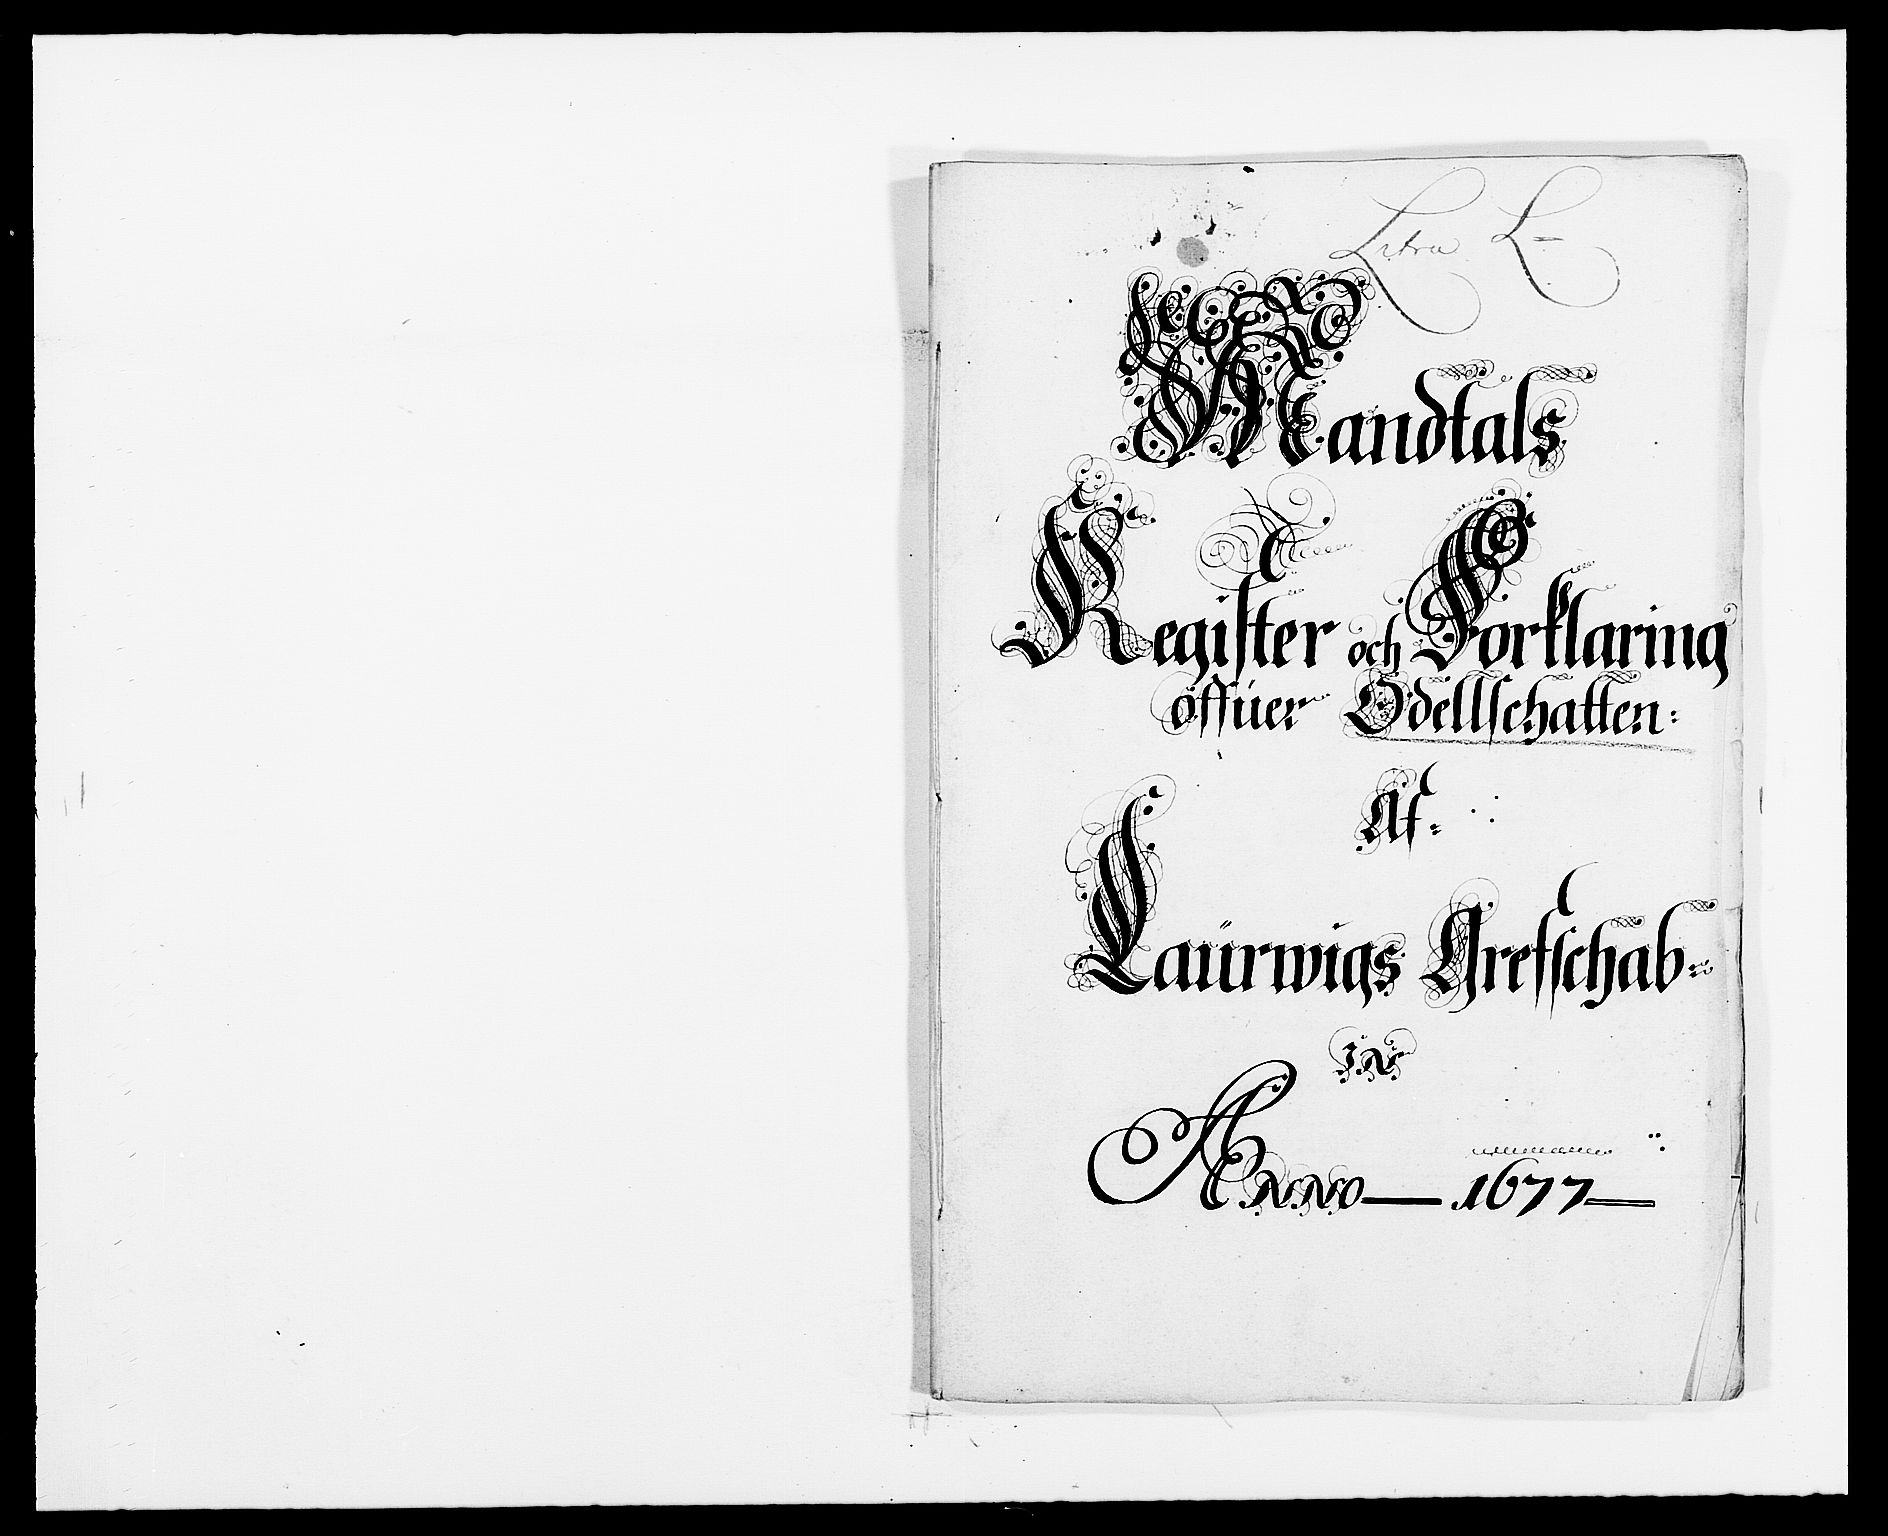 Litra L=
Mandtals
Register och Forklaring
offuer Odellschatten:
Af:
Laürwigs Grefschab=
IN
ANNO 1677